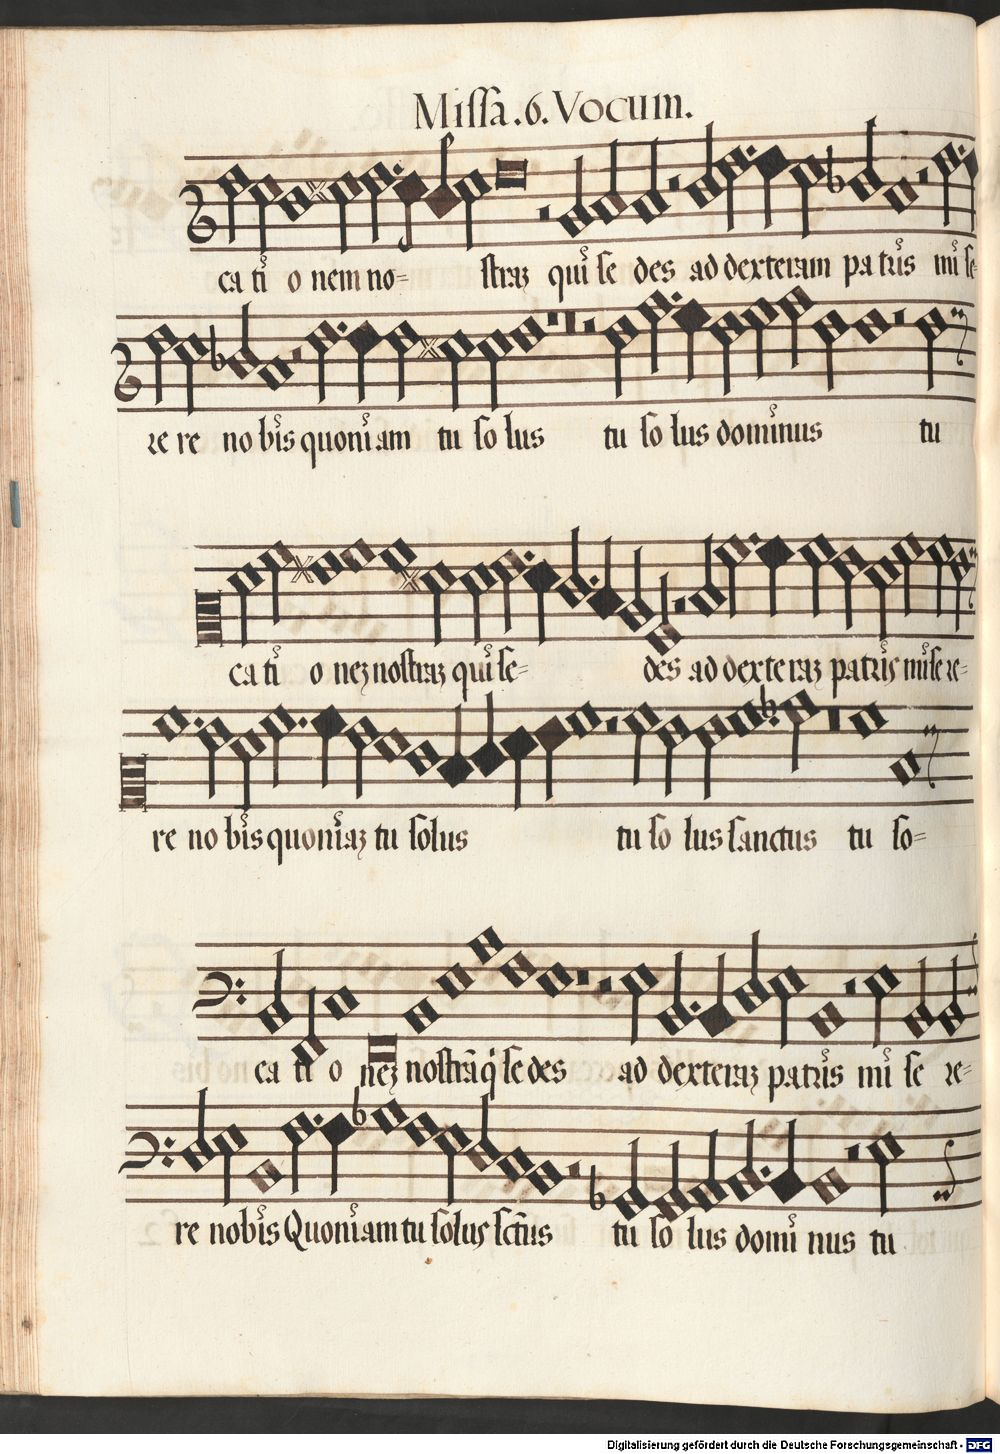 Missã. 6. Vocum.
ca ti o nem no= straz qui se des ad dexteram pa tris mi se=
re re no bis quoniam tu so lus tu so lus dominus tu
ca ti o nez nostraz qui se= des ad dexte raz patris mise re=
re no bis quoniaz tu solus tu so lus sanctus tu so=
ca ti o nez nostrã q̇ se des ad dexteraz patris mi se re=
re nobis Quoniam tu solus sctũs tu so lus domi nus tu
Digitalisierung gefördert durch die Deutsche Forschungsgemeinschaft - DFG